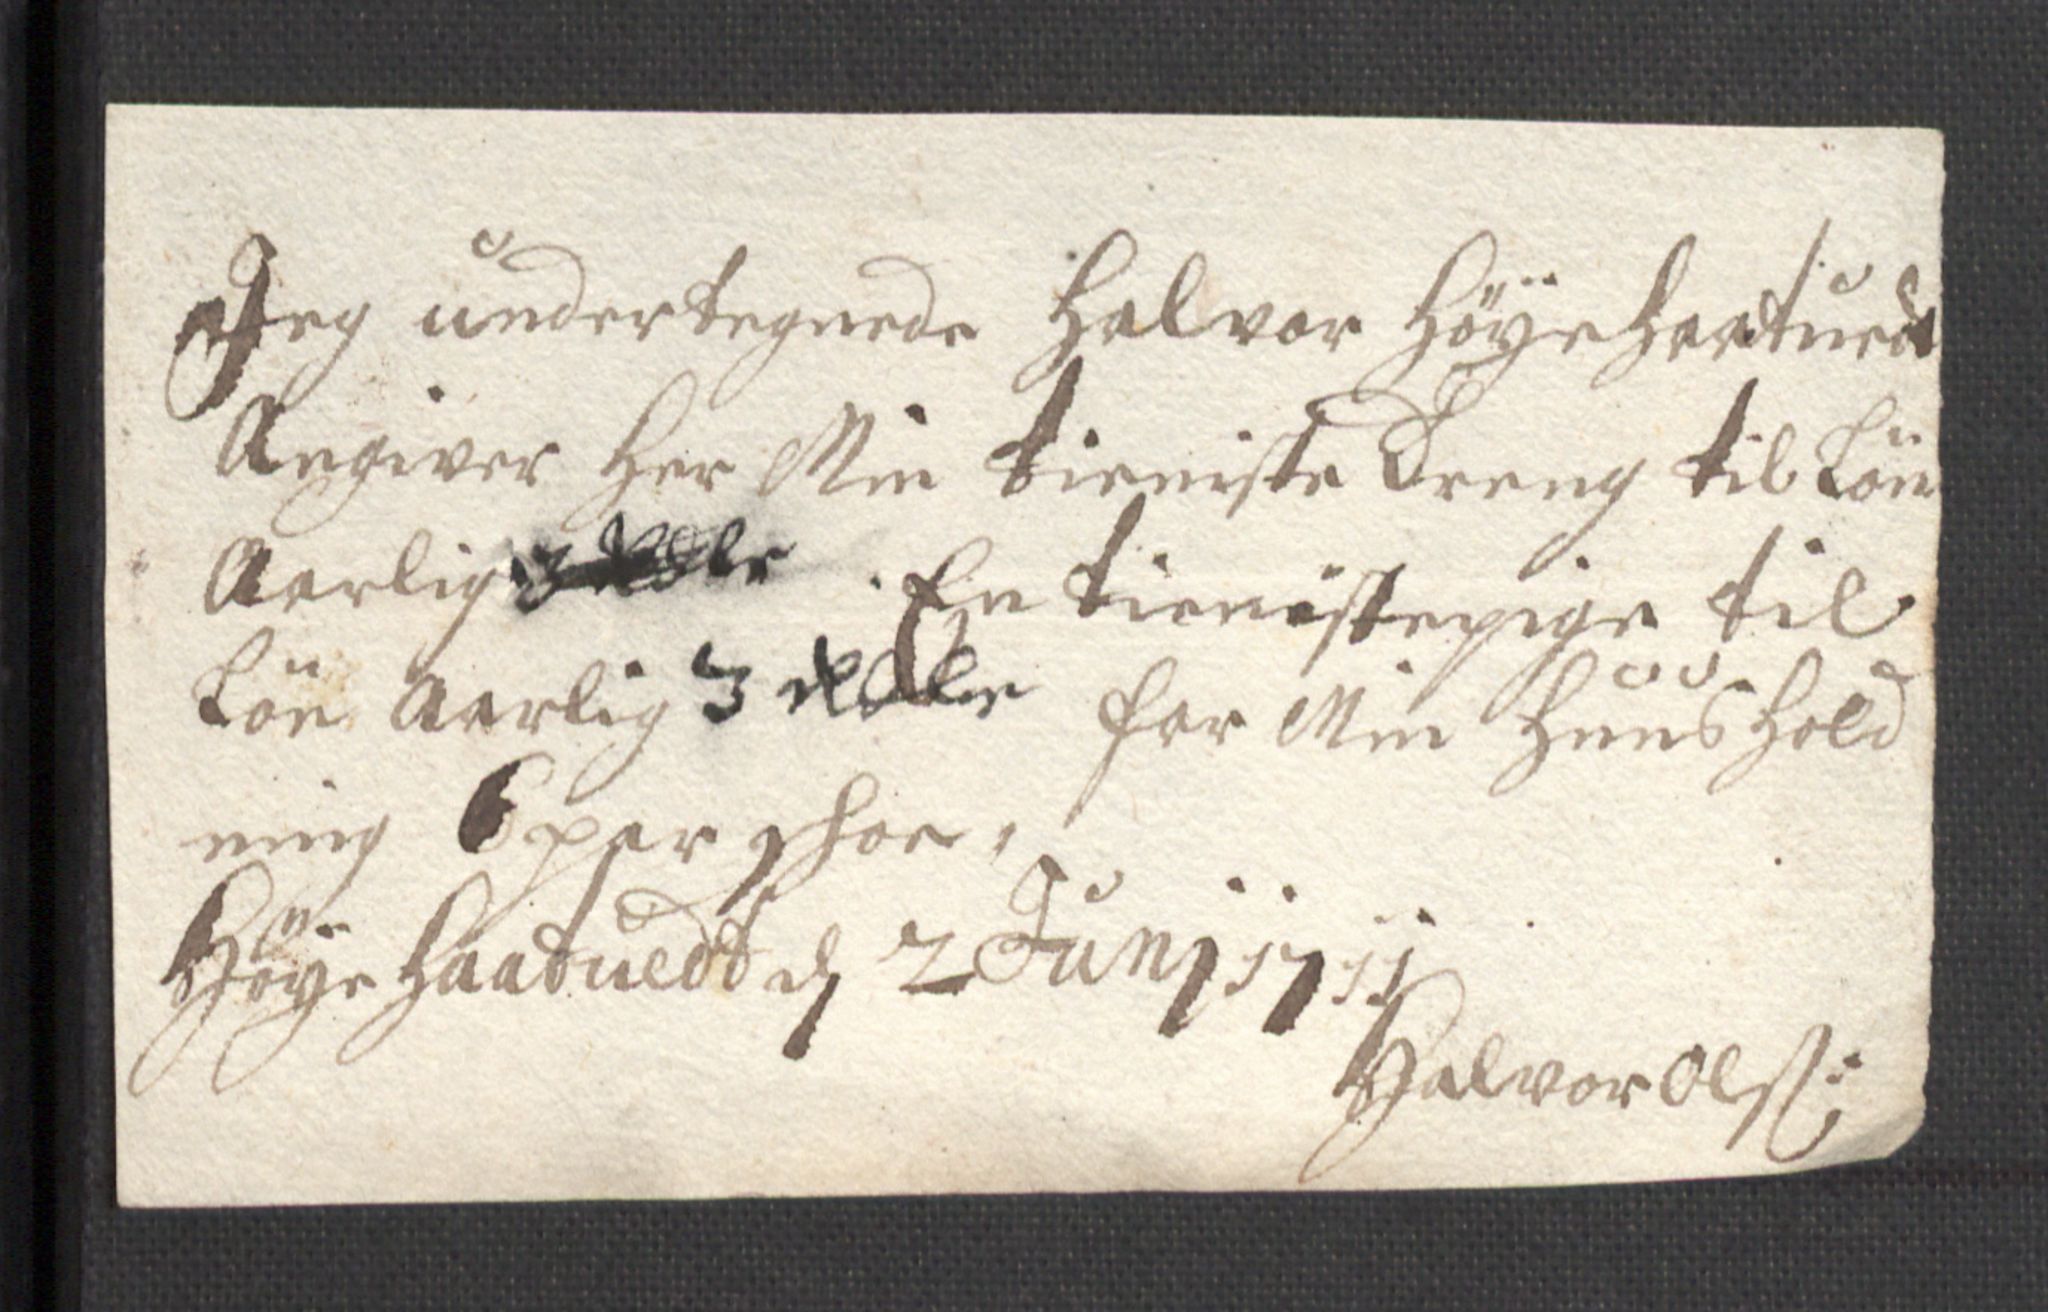 Jeg undertegnede Halvor Höÿe Haatuedt
Angiver her Min tieniste Dreng til Lön
Aarlig 3 Rdlr En tienistepige til
Lön Aarlig 3 Rdlr for Min Huus hold
ning 6 par schoe,
Höÿe Haatuedt d 2 Junj 1711
Halvor Olss: